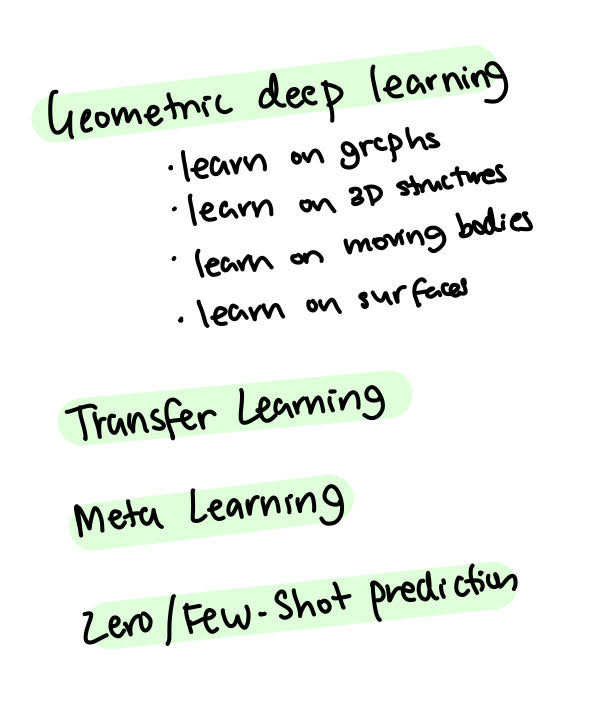 Geometric deep learning
· learn on graphs
· learn on 3D structures
· learn on moving bodies
· learn on surfaces
Transfer Learning
Meta Learning
Zero/Few-Shot prediction